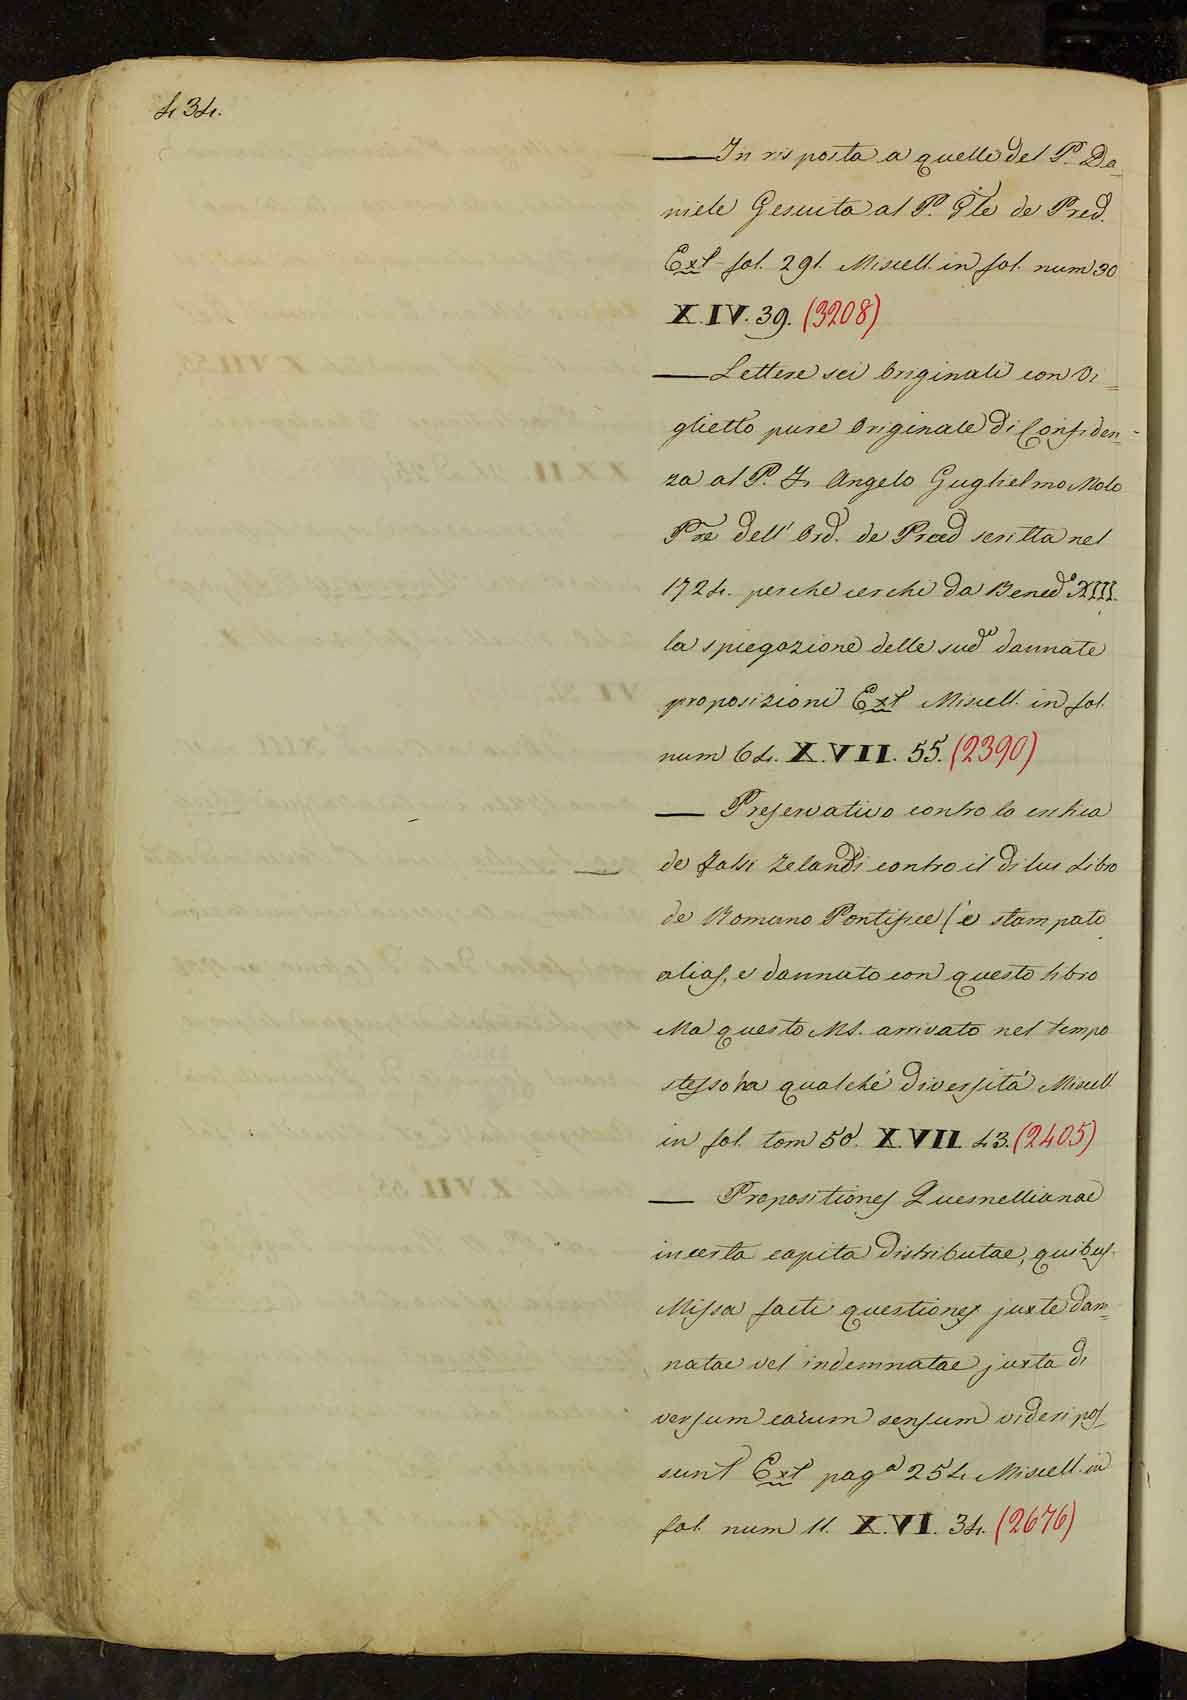 434.
— In risposta a quelle del P. Da-
niele Gesuita al P. Gle de Pred.
Ext fol. 291. Miscell. in fol. num 30
X. IV. 39. (3208)
— Lettere sei Originali con Vi=
glietto pure Originale di Confiden-
za al P. Fr. Angelo Guglielmo Molo
Pre dell' Ord. de Pred scritta nel
1724. perche cerchi da Bened.o XIII.
la spiegazione delle sud.e dannate
proposizioni Ext Miscell. in fol.
num 64. X. VII. 55. (2390)
— Preservativo contro la critica
de Falsi Zelandi contro il di lui Libro
de Romano Pontifice (è stampato
alias, e dannato con questo libro
Ma questo MS. arrivato nel tempo
stesso ha qualché diversitá Miscell.
in fol. tom 50. X. VII. 43. (2405)
— Propositiones Quesnellianae
in certa capita distributae, quibus
Missa facti questiones juste dam=
natae vel indemnatae juxta di
versum earum sensum videri pos
sunt Ext pag.a 254 Miscell. in
fol. num 11. X. VI. 34. (2676)